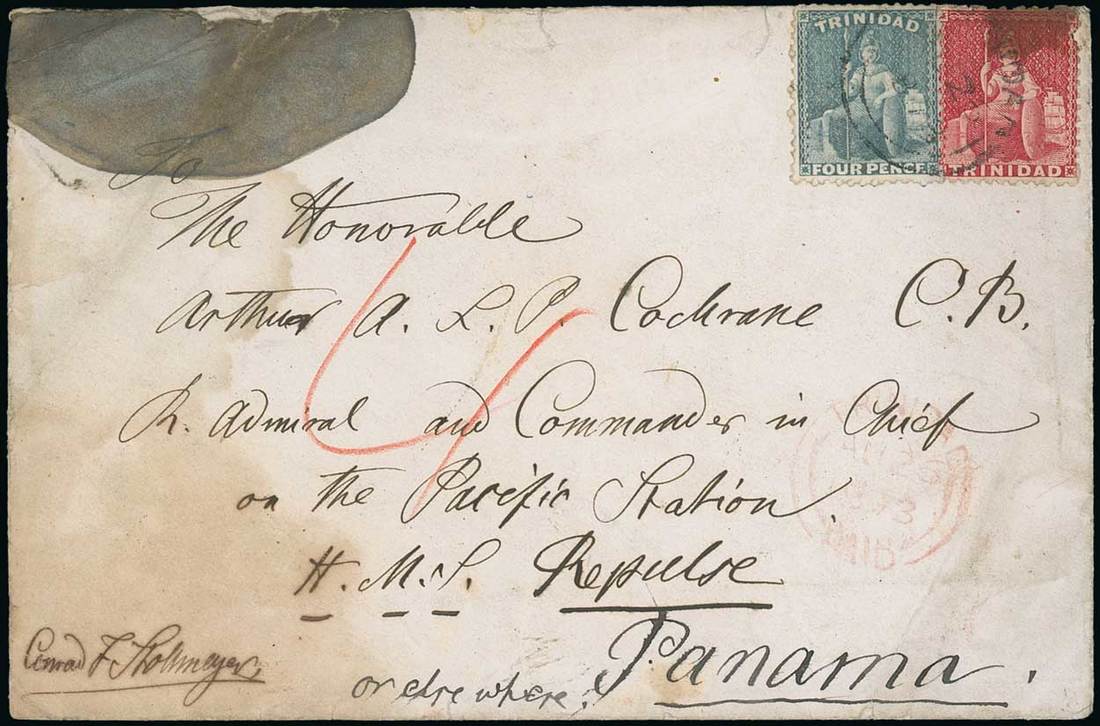 TRINIDAD
FOUR PENCE
TRINIDAD
To
The Honorable
Arthur A. L. P. Cochrane C.B.
R. Admiral and Commander in Chief
on the Pacific Station.
H.M.S. Repulse
Panama.
or elsewhere.
Conrad F. Stollmeyer,